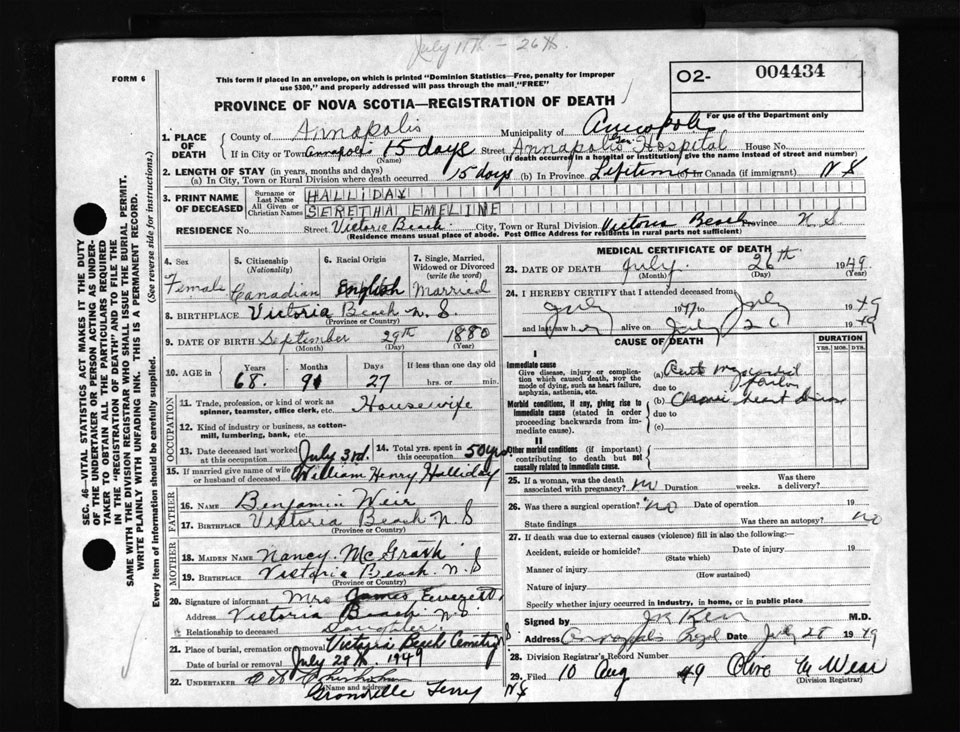 July 11th - 26th.
FORM 6
This form if placed in an envelope, on which is printed "Dominion Statistics—Free, penalty for improper
use $300," and properly addressed will pass through the mail "FREE"
O2- 004434
For use of the Department only
PROVINCE OF NOVA SCOTIA—REGISTRATION OF DEATH
1. PLACE OF DEATH
County of Annapolis Municipality of Annapolis
If in City or Town Annapolis 15 days (Name) Street Annapolis Gen. Hospital House No.
(If death occurred in a hospital or institution, give the name instead of street and number)
2. LENGTH OF STAY (in years, months and days)
(a) In City, Town or Rural Division where death occurred 15 days (b) In Province Lifetime (c) In Canada (if immigrant) N S
3. PRINT NAME OF DECEASED
Surname or Last Name HALLIDAY
All Given or Christian Names SERETHA EMELINE
RESIDENCE No. Street Victoria Beach City, Town or Rural Division Victoria Beach Province N. S.
(Residence means usual place of abode. Post Office Address for residents in rural parts not sufficient)
4. Sex Female
5. Citizenship (Nationality) Canadian
6. Racial Origin English
7. Single, Married, Widowed or Divorced (write the word) Married
8. BIRTHPLACE Victoria Beach N. S.
(Province or Country)
9. DATE OF BIRTH September 29th 1880
(Month) (Day) (Year)
10. AGE in Years Months Days If less than one day old
68 9 27 hrs. or min.
OCCUPATION
11. Trade, profession, or kind of work as
spinner, teamster, office clerk, etc. Housewife
12. Kind of industry or business, as cotton-
mill, lumbering, bank, etc.
13. Date deceased last worked at this occupation July 3rd. 14. Total yrs. spent in this occupation 50 yrs.
15. If married give name of wife or husband of deceased William Henry Halliday
FATHER
16. Name Benjamin Weir
17. Birthplace Victoria Beach N. S
(Province or Country)
MOTHER
18. Maiden Name Nancy McGrath
19. Birthplace Victoria Beach. N. S
(Province or Country)
20. Signature of informant Mrs James Everett
Address Victoria Beach N S
Relationship to deceased Daughter
21. Place of burial, cremation or removal Victoria Beach Cemetry
Date of burial or removal July 28th. 1949
22. UNDERTAKER
(Name and address) Granville Ferry N S
MEDICAL CERTIFICATE OF DEATH
23. DATE OF DEATH July 26th 1949
(Month) (Day) (Year)
24. I HEREBY CERTIFY that I attended deceased from
July 1947 to July 1949
and last saw h er alive on July 26 1949
CAUSE OF DEATH
DURATION
YRS. MOS. DYS.
I
Immediate cause
Give disease, injury or complica-
tion which caused death, NOT the
mode of dying, such as heart failure,
asphyxia, asthenia, etc.
(a) Acute myocardial failure
due to
Morbid conditions, if any, giving rise to
immediate cause (stated in order
proceeding backwards from im-
mediate cause).
(b) Chronic heart disease
due to
(c)
II
Other morbid conditions (if important)
contributing to death but not
causally related to immediate cause.
25. If a woman, was the death associated with pregnancy? no Duration weeks. Was there a delivery?
26. Was there a surgical operation? no Date of operation 19
State findings Was there an autopsy? no
27. If death was due to external causes (violence) fill in also the following:
Accident, suicide or homicide? Date of injury 19
(State which)
Manner of injury
(How sustained)
Nature of injury
Specify whether injury occurred in industry, in home, or in public place
Signed by J K Kerr M.D.
Address Annapolis Royal Date July 28 1949
28. Division Registrar's Record Number
29. Filed 10 Aug 49 M Wear
(Division Registrar)
SEC. 46—VITAL STATISTICS ACT MAKES IT THE DUTY
OF THE UNDERTAKER OR PERSON ACTING AS UNDER-
TAKER TO OBTAIN ALL THE PARTICULARS REQUIRED
IN THE "REGISTRATION OF DEATH" AND TO FILE THE
SAME WITH THE DIVISION REGISTRAR WHO SHALL ISSUE THE BURIAL PERMIT.
WRITE PLAINLY WITH UNFADING INK. THIS IS A PERMANENT RECORD.
Every item of information should be carefully supplied. (See reverse side for instructions.)